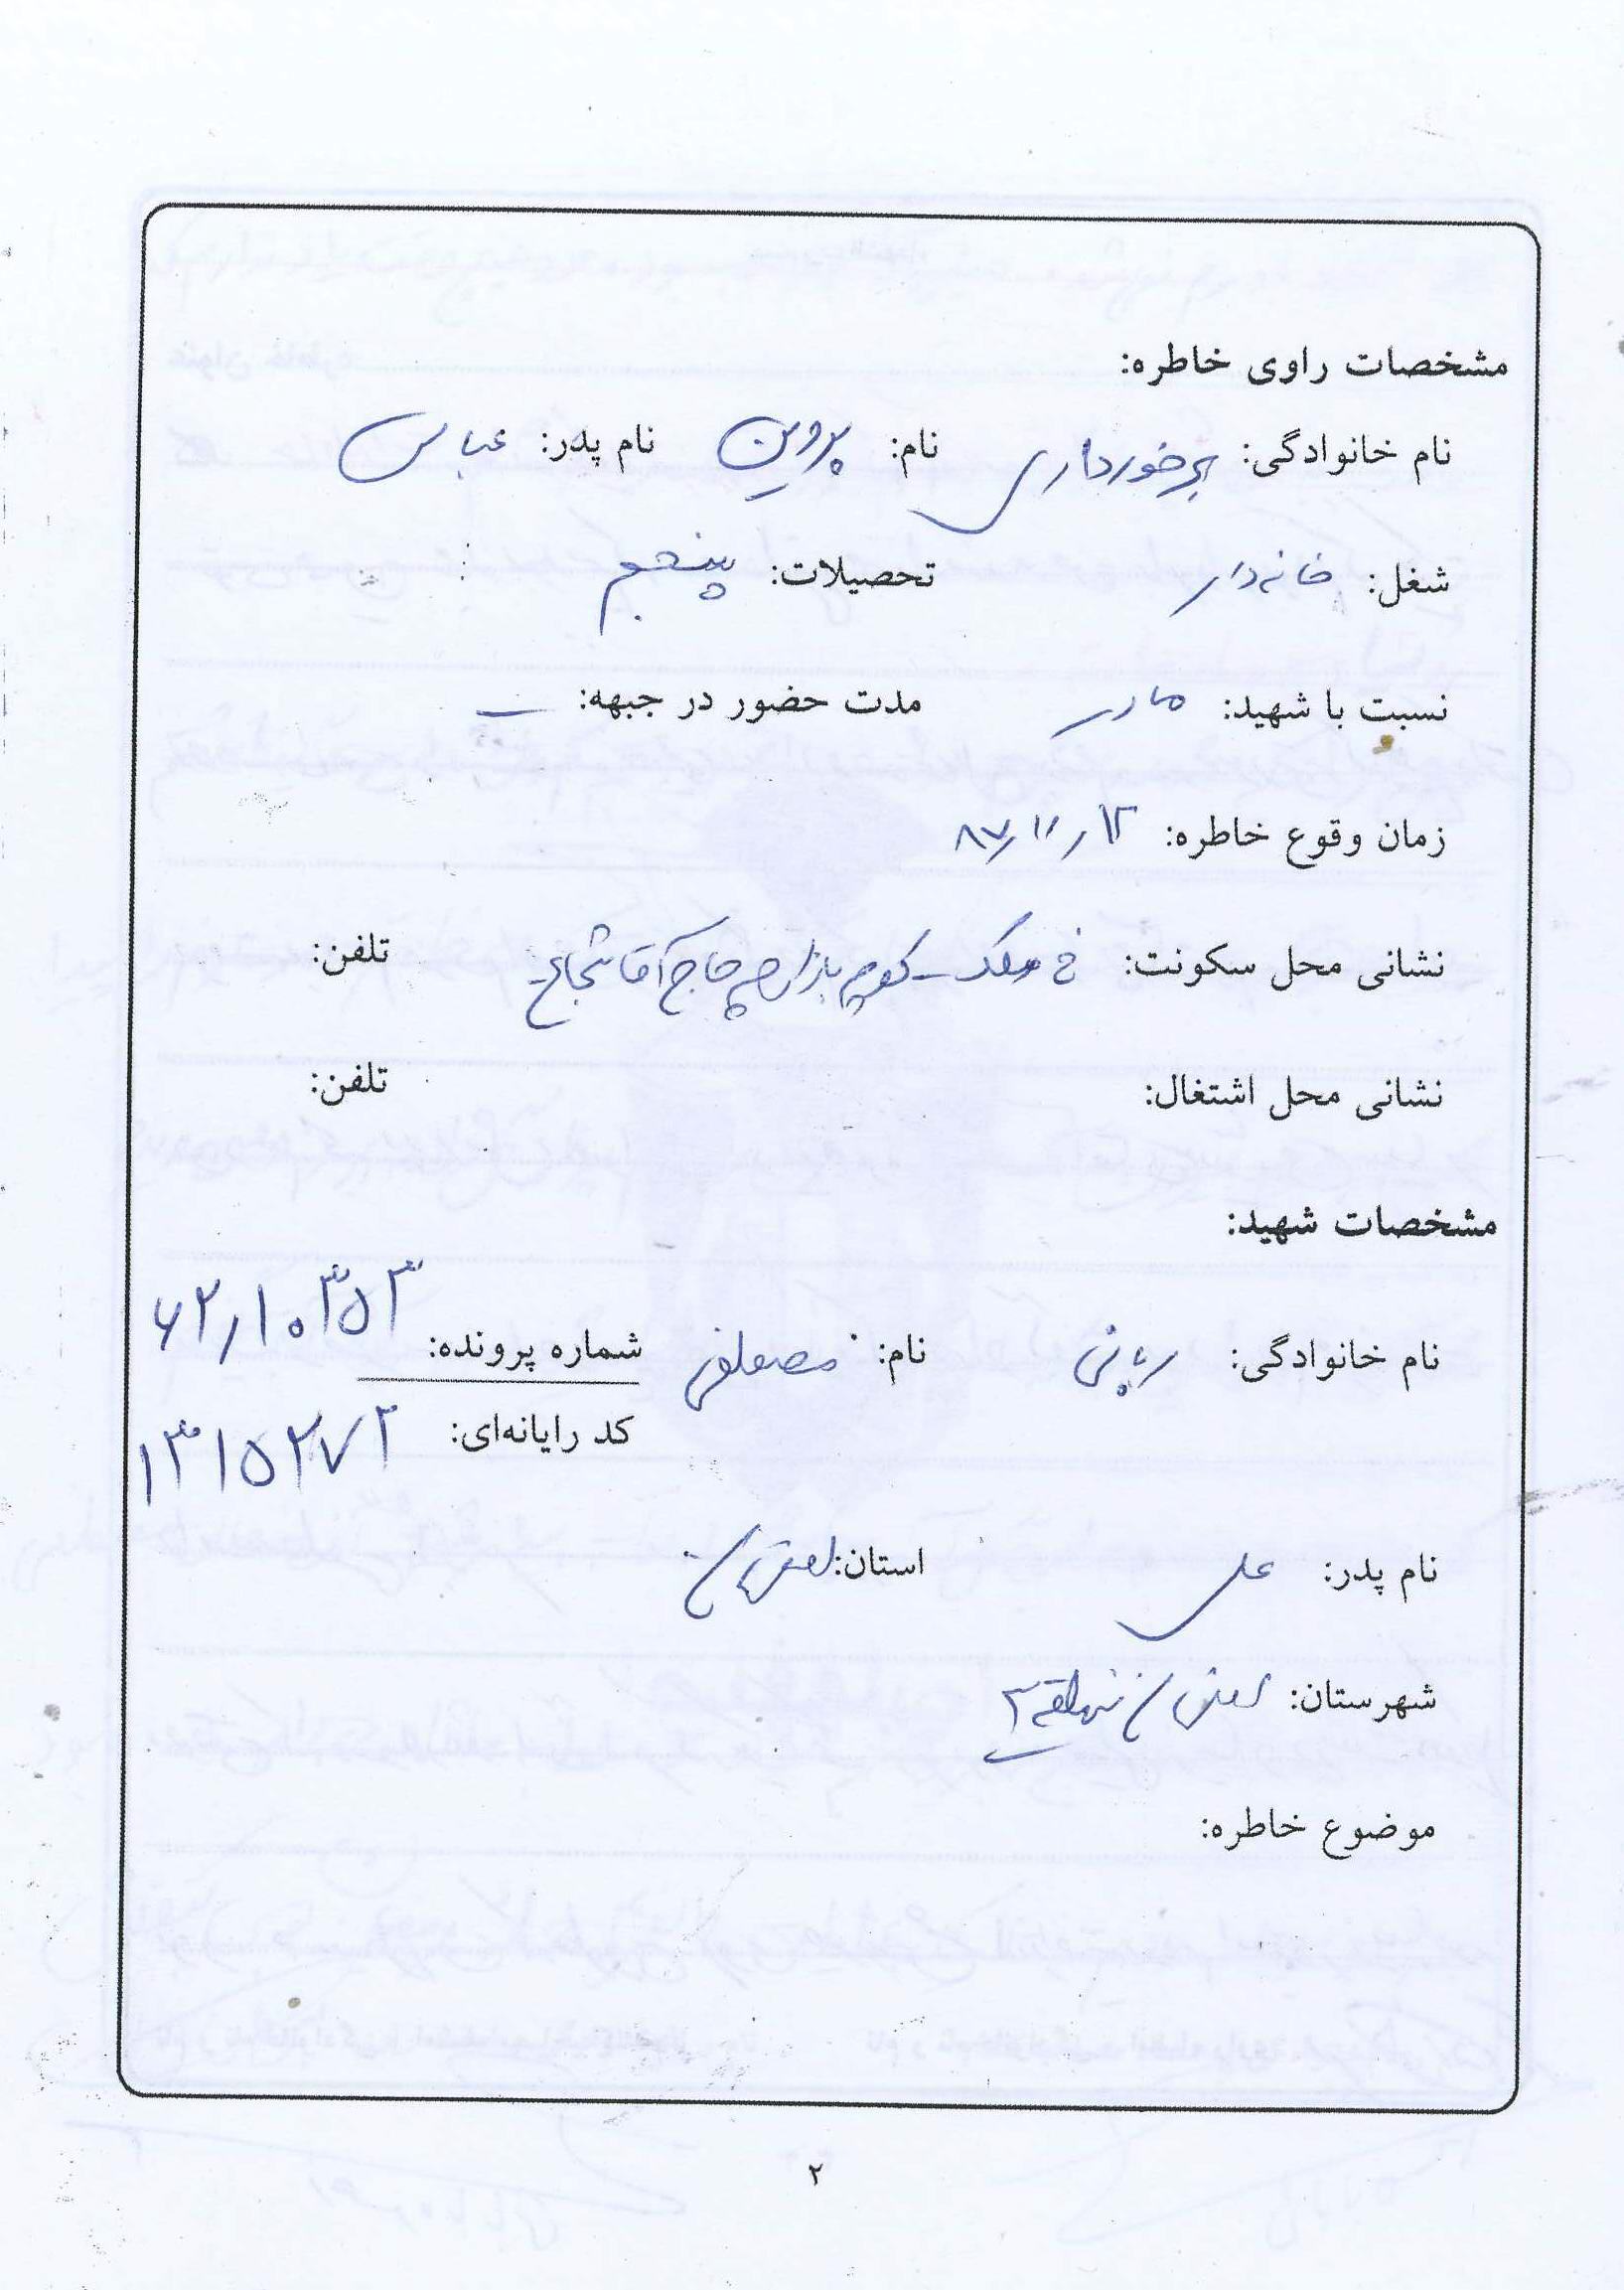 مشخصات راوی خاطره:
نام خانوادگی: برخورداری نام: پروین نام پدر: عباس
شغل: خانه‌دار تحصیلات: پنجم :
نسبت با شهید: مادر مدت حضور در جبهه: ـــ
زمان وقوع خاطره: ۸۷/۱۱/۱۲
نشانی محل سکونت: خ ملک – کوچه بازارچه حاج آقا شجاع تلفن:
نشانی محل اشتغال: تلفن:
مشخصات شهید:
نام خانوادگی: ربانی نام: مصطفی شماره پرونده: ۶۲/۱۰۳۵۳
کد رایانه‌ای: ۱۳۱۵۲۷۲
نام پدر: علی استان: اصفهان
شهرستان: اصفهان منطقه ۲
موضوع خاطره:
۲